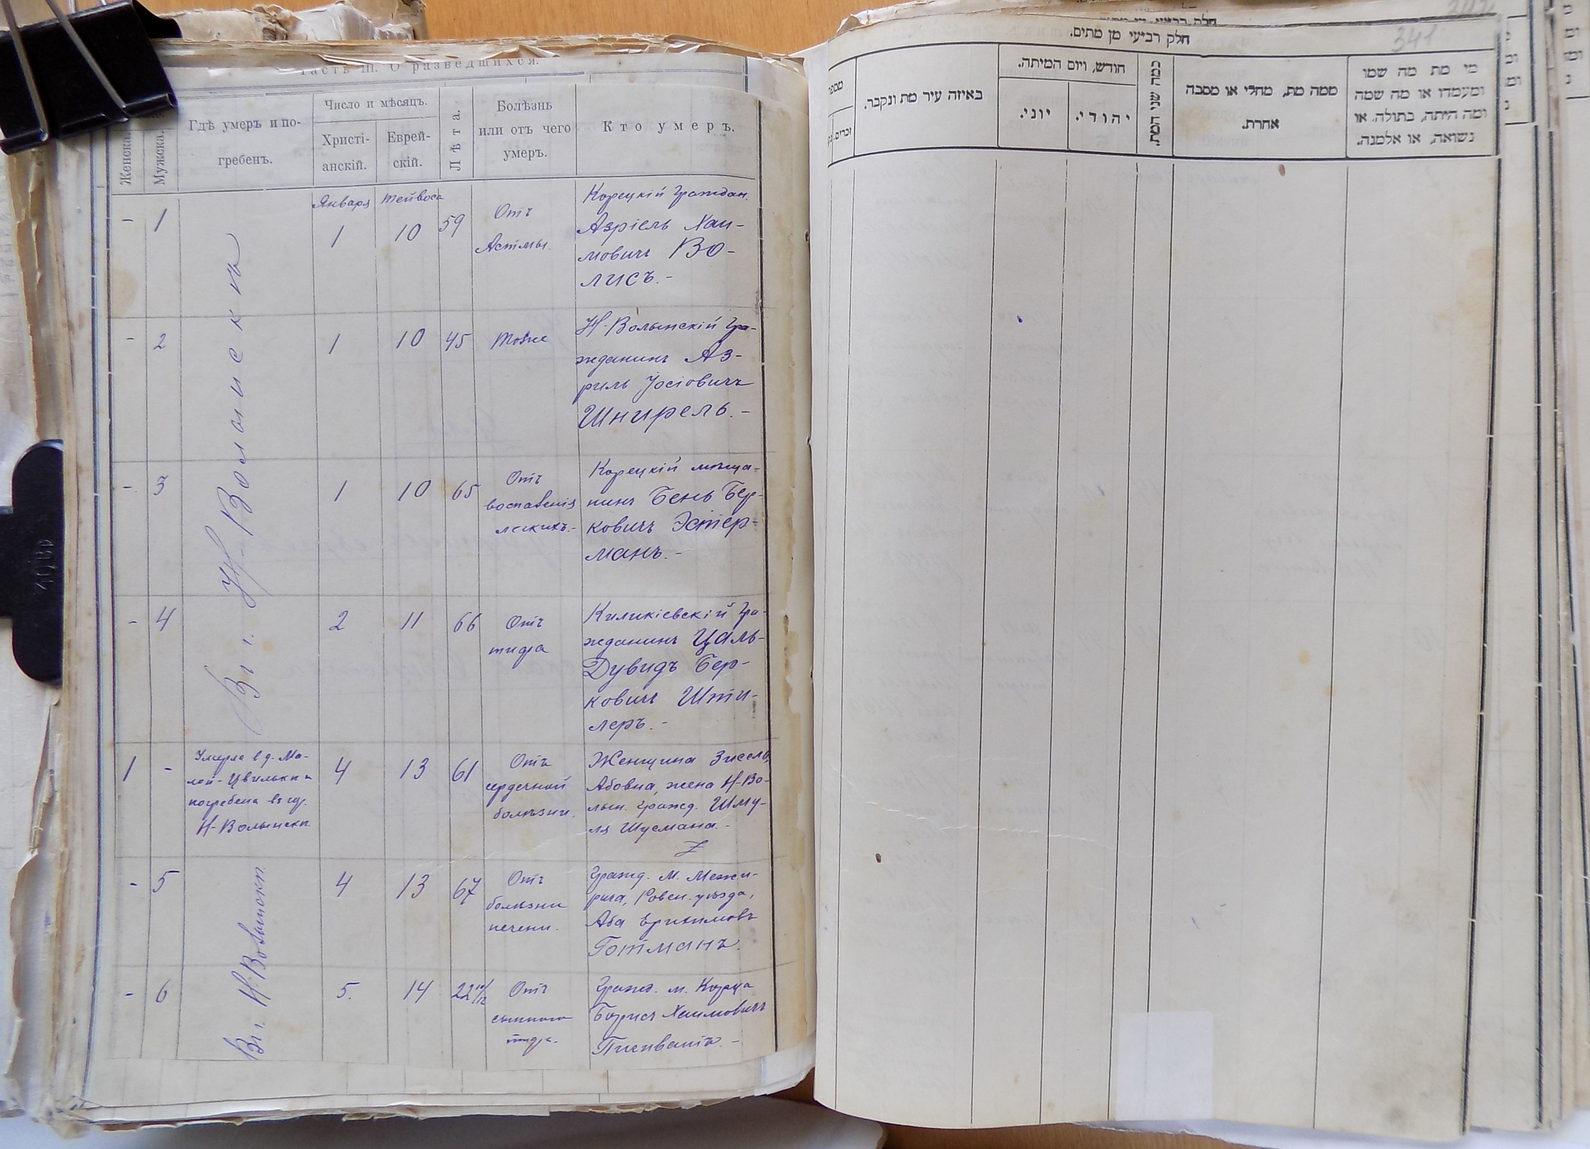 Часть III. О разведшихся.
Женска.
Мужска.
Гдѣ умеръ и по-
гребенъ.
Число и мѣсяцъ.
Христі-
анскій.
Еврей-
скій.
Лѣта.
Болѣзнь
или отъ чего
умеръ.
Кто умеръ.
Января
Тейвоса
В г. Н-Волынскѣ
- 1
1
10
59
Отъ
Астмы
Корецкій граждан.
Азріель Хаи-
мовичъ Во-
лисъ.-
- 2
1
10
45
Тоже
Н-Волынскій гра-
жданинъ Аз-
риль Іосіовичъ
Шнирель.-
- 3
1
10
65
Отъ
воспаленія
легкихъ.-
Корецкій мѣща-
нинъ Бень Бер-
ковичъ Эстер-
манъ.-
- 4
2
11
66
Отъ
тифа
Киликіевскій гра-
жданинъ Цаль-
Дувидъ Бер-
ковичъ Шти-
леръ.-
1 -
Умерла в д. Ма-
лой-Цвилькѣ
погребена въ гор.
Н-Волынскѣ
4
13
61
Отъ
сердечной
болѣзни.
Женщина Зисель
Абовна, жена Н-Во-
лын. гражд. Шму-
ля Шусмана.-
В г. Н-Волынскѣ
- 5
4
13
67
Отъ
болѣзни
печени.
Гражд. м. Межи-
рича, Ровен. уѣзда,
Аба
Готманъ.
- 6
5.
14
22
Отъ
сыпного
тифа.
Гражд. м. Корца
Борисъ Хаимовичъ
341
חלק רביעי מן מתים.
מספר
זכרים
באיזה עיר מת ונקבר.
חודש, ויום המיתה.
יוני.
יהודי.
כמה שני המת.
ממה מת, מחלי או מסבה
אחרת.
מי מת מה שמו
ומעמדו או מה שמה
ומה היתה, בתולה או
נשואה, או אלמנה.